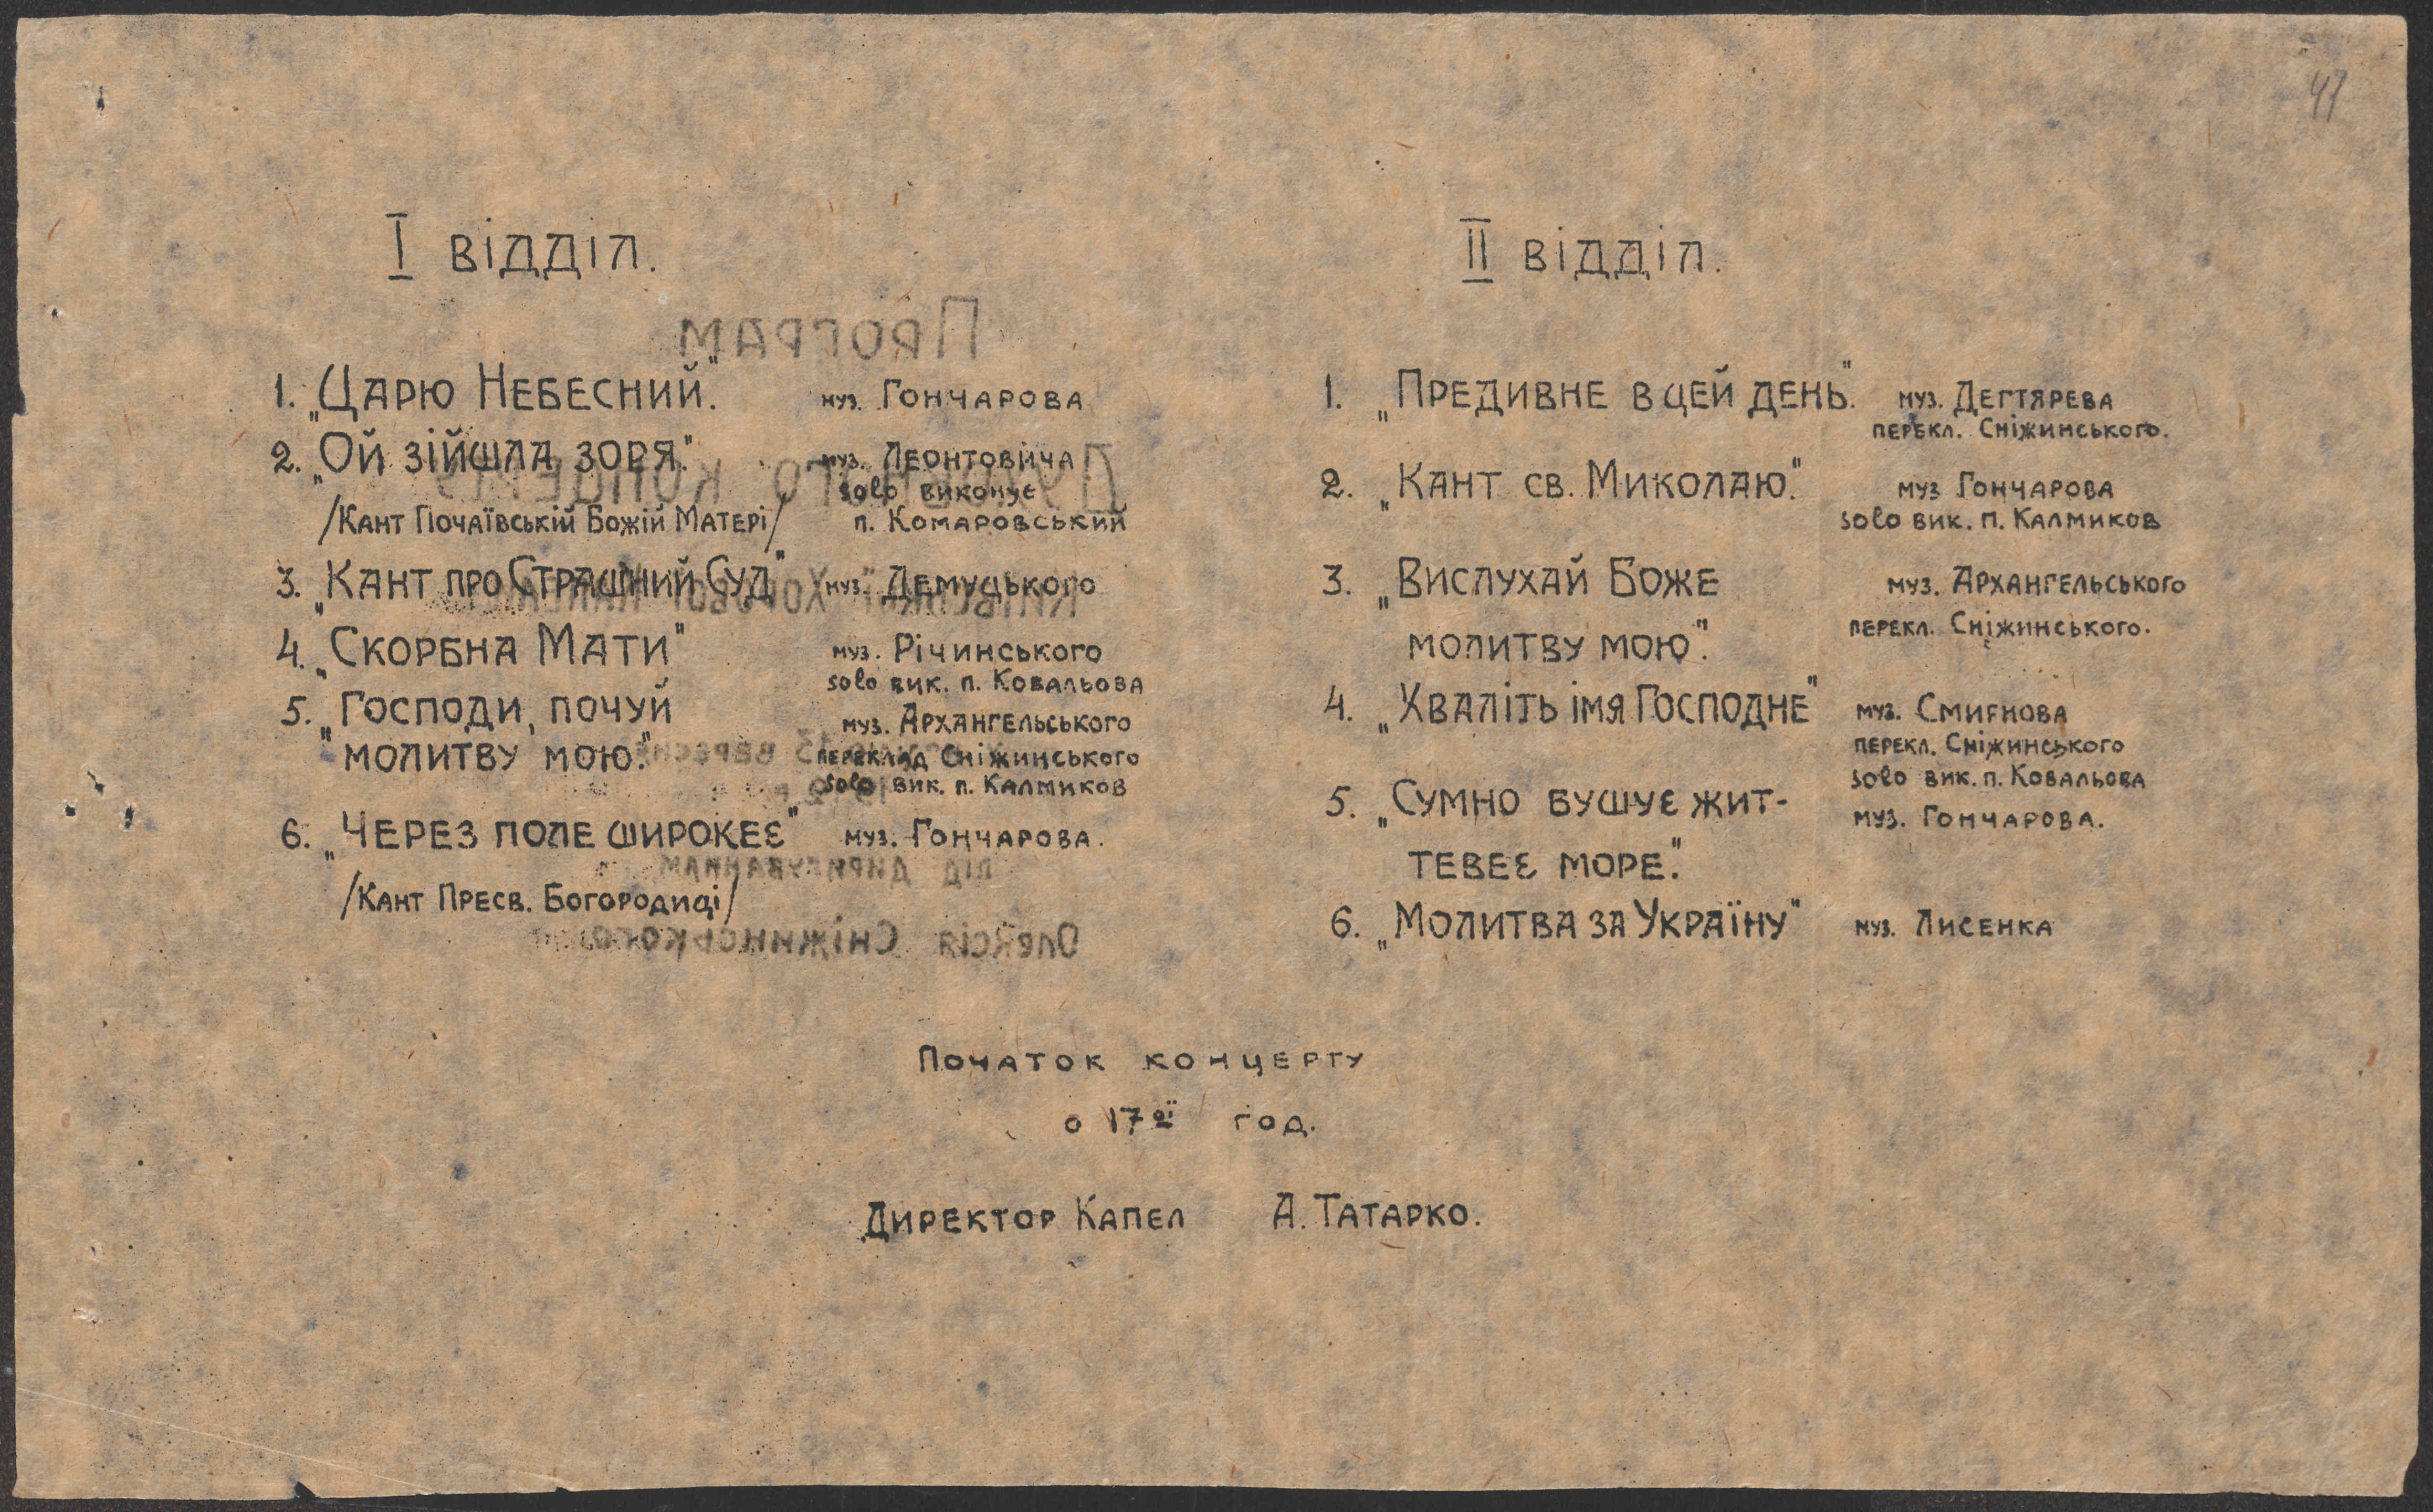 41
I відділ.
1. „Царю Небесний". муз. Гончарова
2. „Ой зійшла зоря". муз. Леонтовича
solo виконує
/Кант Почаївській Божій Матері/ п. Комаровський
3. „Кант про Страшний Суд" муз. Демуцького
4. „Скорбна Мати" муз. Річинського
solo вик. п. Ковальова
5. „Господи, почуй муз. Архангельського
"молитву мою". переклад Сніжинського
solo вик. п. Калмиков
6. „Через поле широкеє" муз. Гончарова.
/Кант Пресв. Богородиці/
II відділ.
1. „Предивне в цей день". муз. Дегтярева
перекл. Сніжинського.
2. „Кант св. Миколаю". муз Гончарова
solo вик. п. Калмиков
3. „Вислухай Боже муз. Архангельського
молитву мою". перекл. Сніжинського.
4. „Хваліть імя Господнє" муз. Смирнова
перекл. Сніжинського
solo вик. п. Ковальова
5. „Сумно бушує жит- муз. Гончарова.
тевеє море".
6. „Молитва за Україну" муз. Лисенка
Початок концерту
о 17ої год.
Директор Капел А. Татарко.
Програм
Духовного концерту
під диригуванням
Олексія Сніжинського